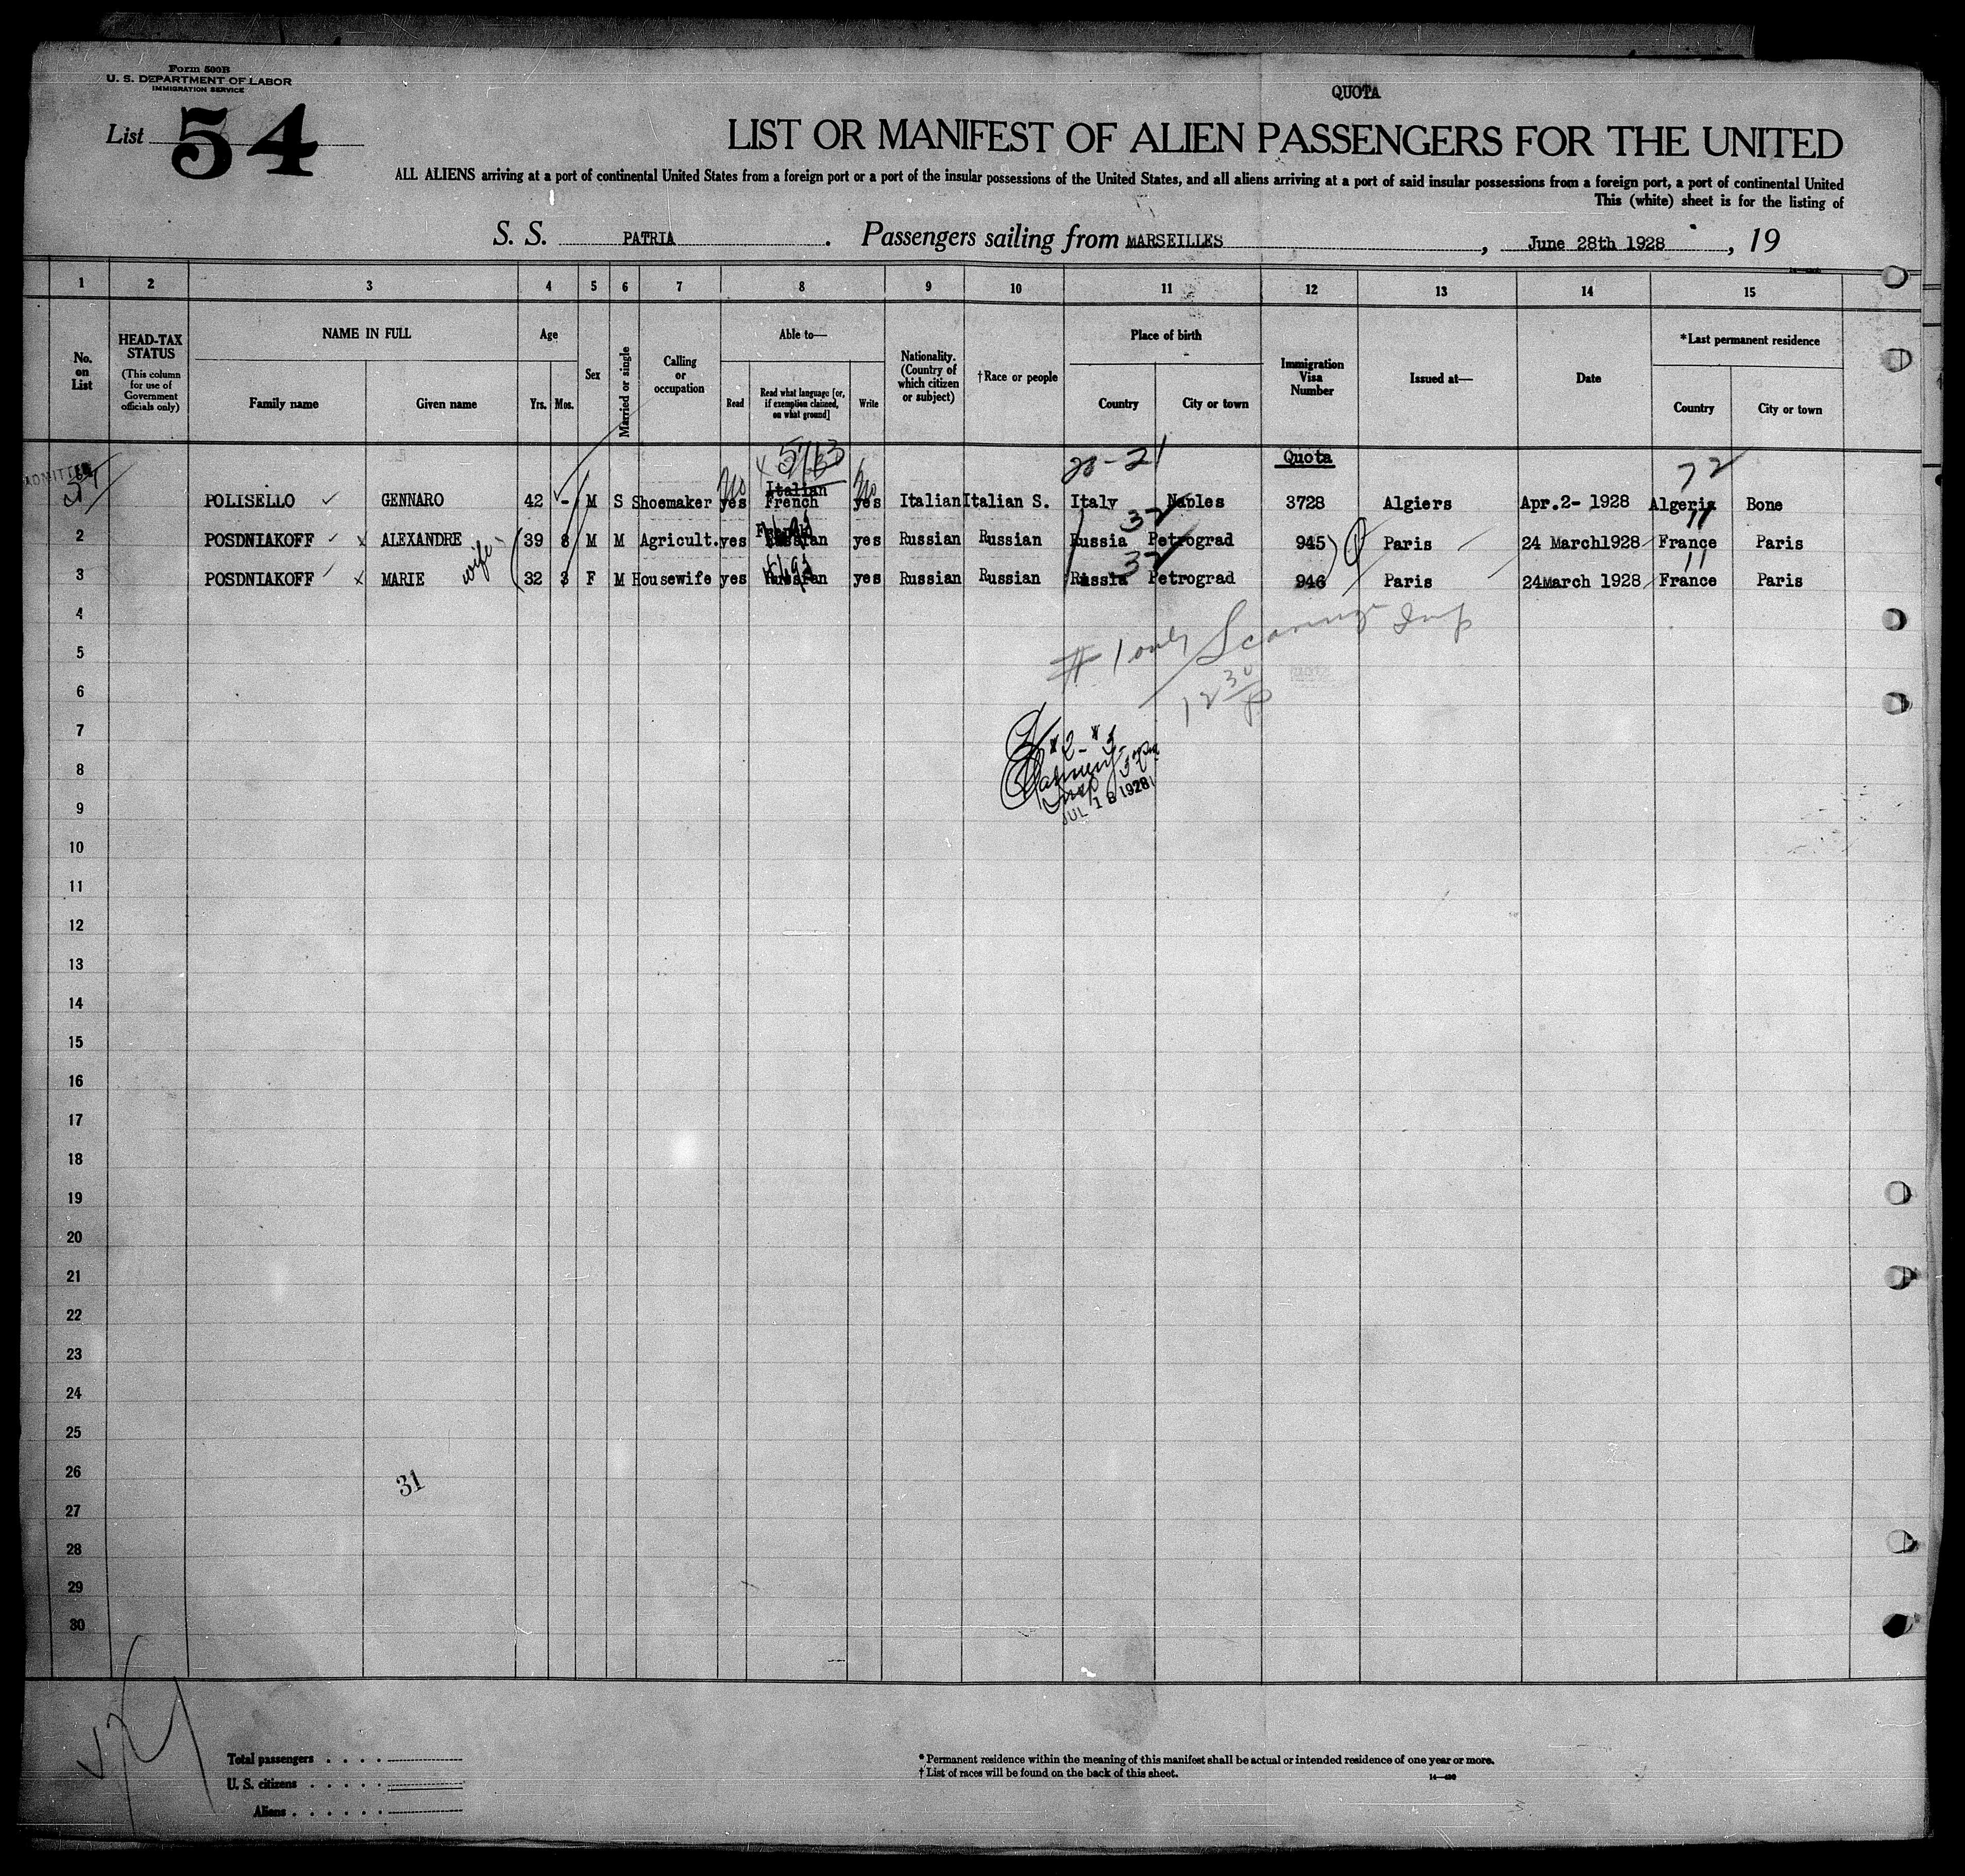 Form 500B
U. S. DEPARTMENT OF LABOR
IMMIGRATION SERVICE
List 54
QUOTA
LIST OR MANIFEST OF ALIEN PASSENGERS FOR THE UNITED
ALL ALIENS arriving at a port of continental United States from a foreign port or a port of the insular possessions of the United States, and all aliens arriving at a port of said insular possessions from a foreign port, a port of continental United
This (white) sheet is for the listing of
S. S. PATRIA. Passengers sailing from MARSEILLES, June 28th 1928, 19
1 2 3 4 5 6 7 8 9 10 11 12 13 14 15
No. on List
HEAD-TAX STATUS
(This column for use of Government officials only)
NAME IN FULL
Family name
Given name
Age
Yrs. Mos.
Sex
Married or single
Calling or occupation
Able to—
Read
Read what language [or, if exemption claimed, on what ground]
Write
Nationality. (Country of which citizen or subject)
†Race or people
Place of birth
Country
City or town
Immigration Visa Number
Issued at—
Date
*Last permanent residence
Country
City or town
5/63
20-21
Quota
72
ADMITTED
no Italian no
POLISELLO GENNARO 42 - M S Shoemaker yes French yes Italian Italian S. Italy Naples 3728 Algiers Apr.2- 1928 Algeria Bone
32 11
2 POSDNIAKOFF x ALEXANDRE 39 8 M M Agricult. yes Russian yes Russian Russian Russia Petrograd 945 Paris 24 March1928 France Paris
wife 32 11
3 POSDNIAKOFF x MARIE 32 3 F M Housewife yes Russian yes Russian Russian Russia Petrograd 946 Paris 24March 1928 France Paris
4
# 1 only Insp
5
6
12 30 p
7
#2-#3
8
Insp
9
JUL 18 1928
10
11
12
13
14
15
16
17
18
19
20
21
22
23
24
25
26
31
27
28
29
30
Total passengers . . . .
U. S. citizens . . . . .
Aliens . . . . . .
* Permanent residence within the meaning of this manifest shall be actual or intended residence of one year or more.
† List of races will be found on the back of this sheet.